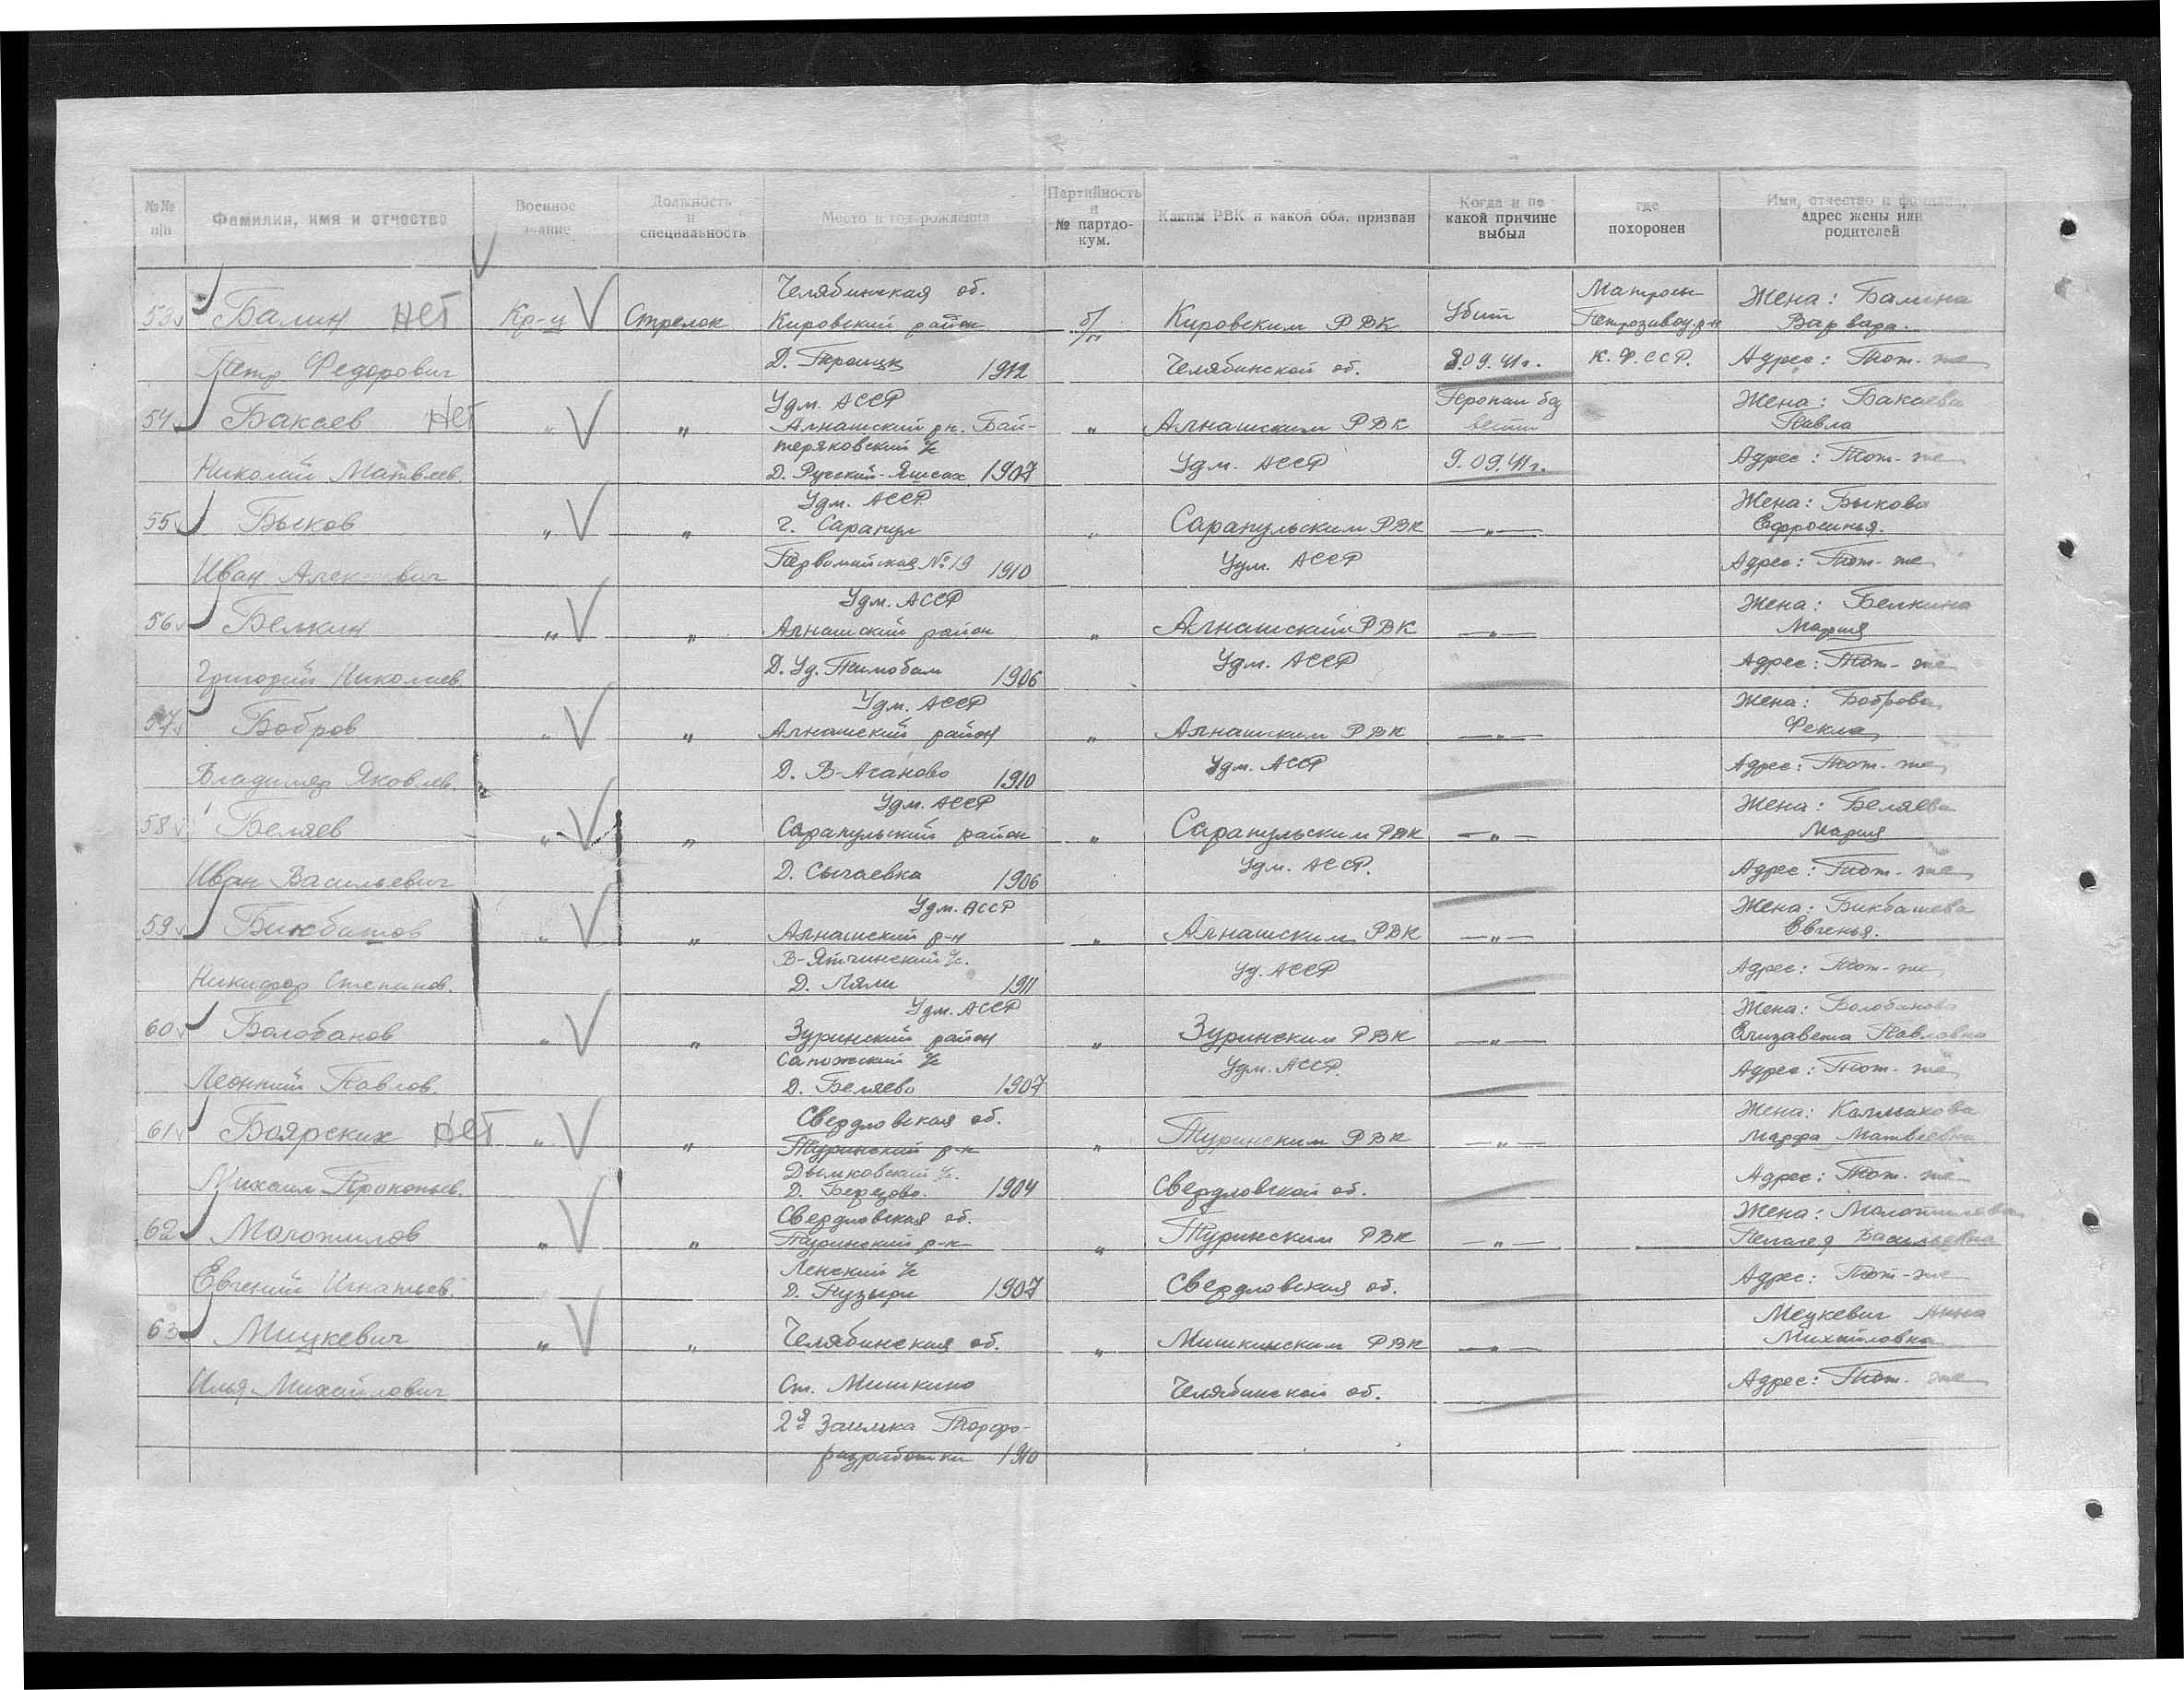 №№ п|п
Фамилия, имя и отчество
Военное звание
Должность и специальность
Место и год рождения
Партийность и № партдокум.
Каким РВК и какой обл. призван
Когда и по какой причине выбыл
где похоронен
Имя, отчество и фамилия, адрес жены или родителей
Челябинская об. Матросы Жена: Балина
53 Балин нет Кр-ц Стрелок Кировский район б/п Кировским РВК Убит Петрозавод. р-н Варвара.
Петр Федорович Д. Троицк 1912 Челябинской об. 8.09.41г. К.Ф.ССР. Адрес: Тот-же
Удм. АССР Пропал без Жена: Бакаева
54 Бакаев Нет " " Алнашский рн. Бай- " Алнашским РВК вести Павла
теряковский с/с
Николай Матвеев. Д. Русский- 1907 Удм. АССР 9.09.41г. Адрес: Тот-же
Удм. АССР Жена: Быкова
55 Быков " " г. Сарапул " Сарапульским РВК —"— Ефросинья.
Иван Первомайская №19 1910 Удм. АССР Адрес: Тот-же
Удм. АССР Жена: Белкина
56 Белкин " " Алнашский район " Алнашский РВК —"— Мария
Григорий Николаев. Д. Уд. 1906 Удм. АССР Адрес: Тот-же
Удм. АССР Жена: Боброва
57 Бобров " " Алнашский район " Алнашским РВК —"— Фекла
Владимир Яковлев. Д. В-Асаново 1910 Удм. АССР Адрес: Тот-же
Удм. АССР Жена: Беляева
58 Беляев " " Сарапульский район " Сарапульским РВК —"— Мария
Иван Васильевич Д. Сигаевка 1906 Удм. АССР. Адрес: Тот-же
Удм. АССР Жена: Бикбашева
59 " " Алнашский р-н " Алнашским РВК —"— Евгенья.
В-Ятчинский с/с.
Никифор Степанов. Д. Ляли 1911 Уд. АССР Адрес: Тот-же
Удм. АССР Жена:Болобанова
60 Болобанов " " Зуринский район " Зуринским РВК —"— Елизавета Павловна
с/с
Леонтий Павлов. Д. Беляево 1907 Удм. АССР. Адрес: Тот-же
Свердловская об. Жена: Калмакова
61 Боярских нет " " Туринский р-н " Туринским РВК —"— Марфа Матвеевна
Дымковский с/с.
Михаил Прокопьев. Д. Березово. 1904 Свердловской об. Адрес: Тот-же
Свердловская об. Жена: Молотилова
62 Молотилов " " Туринский р-н " Туринским РВК —"— Пелагея Васильевна
Ленский с/с
Евгений Игнатьев. Д. Пузыри 1907 Свердловская об. Адрес: Тот-же
Мецкевич Анна
63 Мицкевич " " Челябинская об. " Мишкинским РВК —"— Михайловна
Илья Михайлович Ст. Мишкино Челябинской об. Адрес: Тот-же
2я Заимка Торфо-
разработки 1910